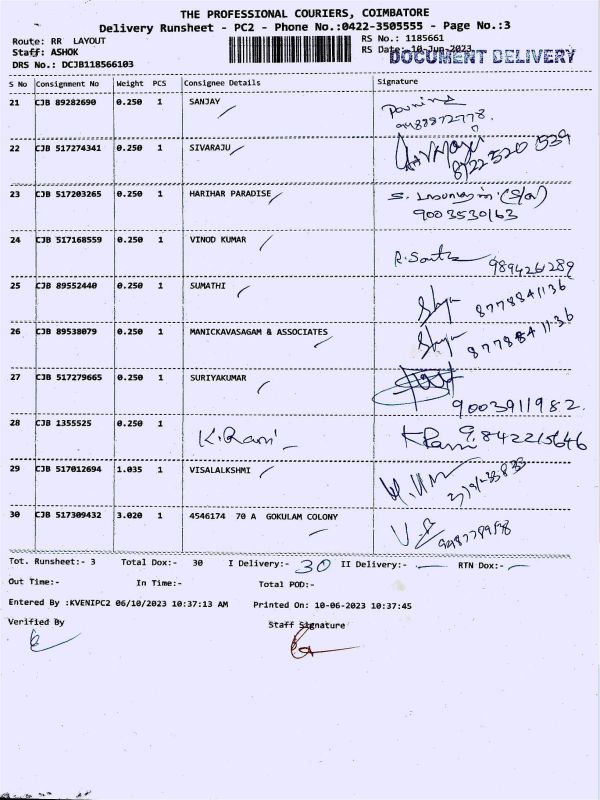 THE PROFESSIONAL COURIERS, COIMBATORE
Delivery Runsheet - PC2 - Phone No.:0422-3505555 - Page No.:3
Route: RR LAYOUT
RS No.: 1185661
Staff: ASHOK
RS Date:- 10-Jun-2023
DOCUMENT DELIVERY
DRS No.: DCJB118566103
S No Consignment No Weight PCS Consignee Details Signature
21 CJB 89282690 0.250 1 SANJAY
22 CJB 517274341 0.250 1 SIVARAJU 8122520539
23 CJB 517203265 0.250 1 HARIHAR PARADISE S. (S/o)
9003530163
24 CJB 517168559 0.250 1 VINOD KUMAR
9894261289
25 CJB 89552440 0.250 1 SUMATHI 8778841136
26 CJB 89538079 0.250 1 MANICKAVASAGAM & ASSOCIATES 8778841136
27 CJB 517279665 0.250 1 SURIYAKUMAR
9003911982.
28 CJB 1355525 0.250 1 K. Rani 9842215646
29 CJB 517012694 1.035 1 VISALALKSHMI
30 CJB 517309432 3.020 1 4546174 70 A GOKULAM COLONY
Tot. Runsheet:- 3 Total Dox:- 30 I Delivery:- 30 II Delivery:- — RTN Dox:- —
Out Time:- In Time:- Total POD:-
Entered By :KVENIPC2 06/10/2023 10:37:13 AM Printed On: 10-06-2023 10:37:45
Verified By Staff Signature